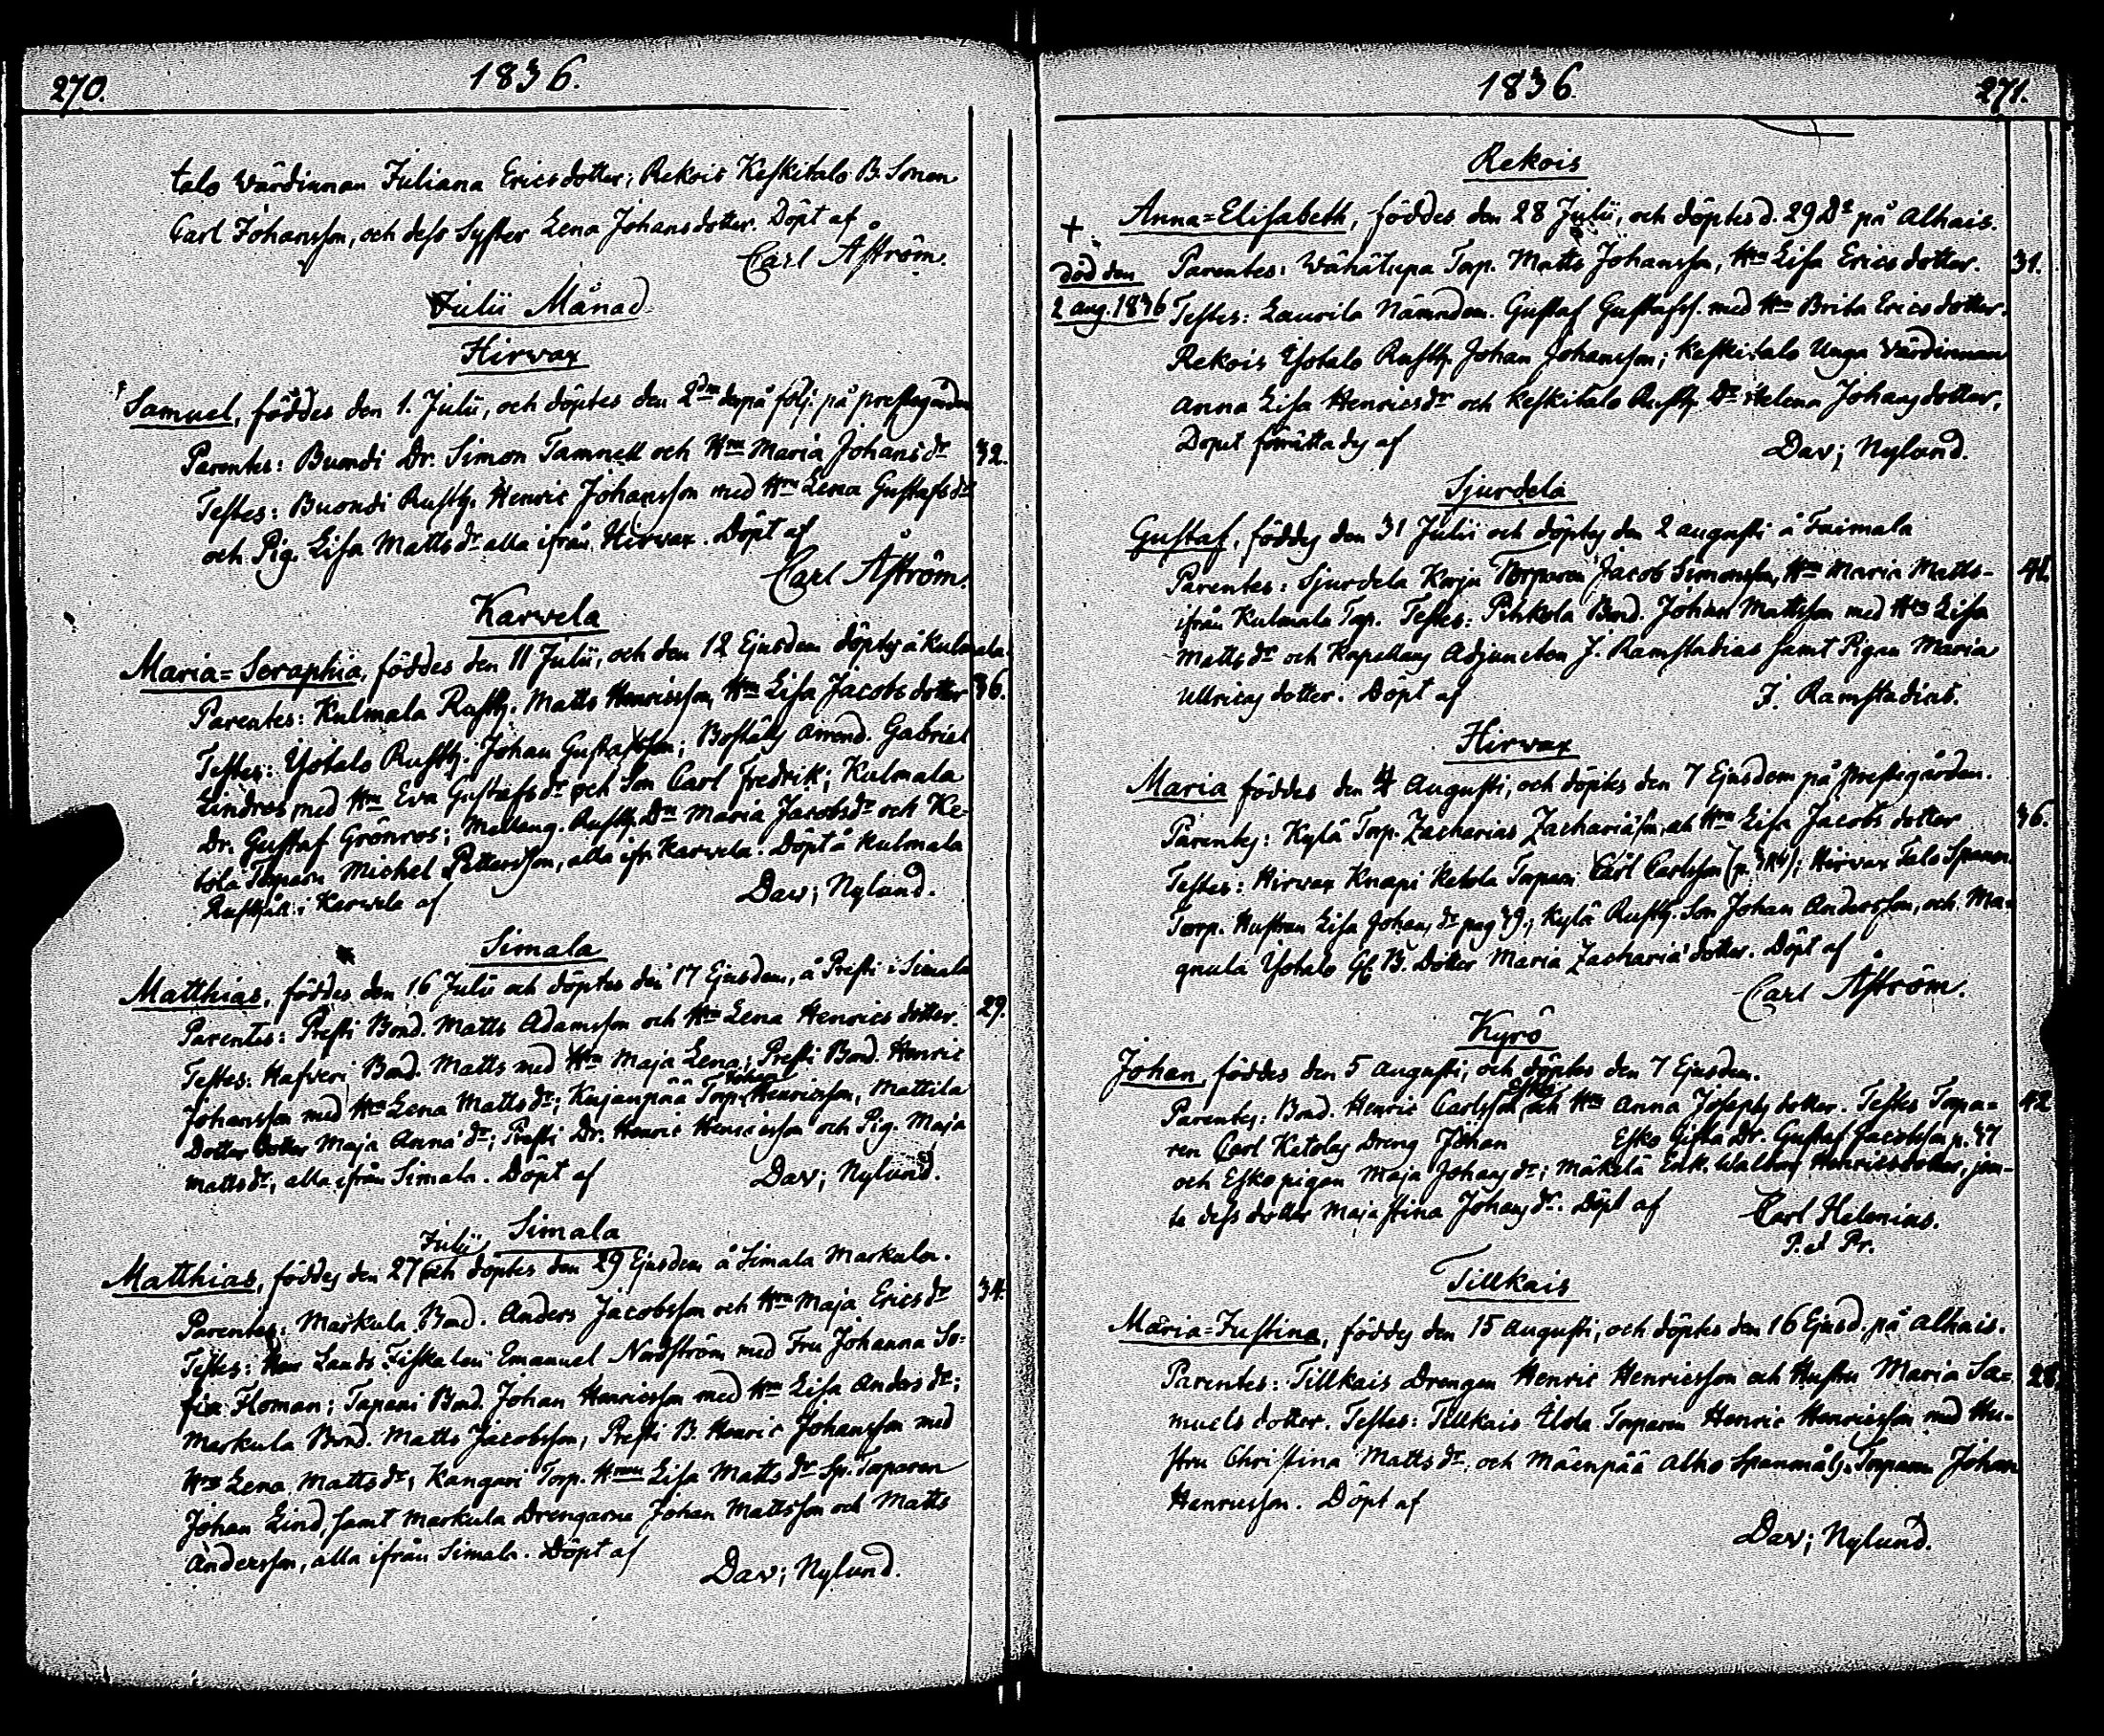 270.
1836.
talo Wärdinnan Juliana Ericsdotter; Rekois Keskitalo B. Sonen
Carl Johansson, och dess Syster Lena Johansdotter. Döpt af
Carl Åström.
Julii Månad
Hirwax
Samuel, föddes den 1. Julii, och döptes den 2dra derpå följ. på prestegården
Parentes: Buondi Dr. Simon Tamnell och Hru Maria Johansdr
32.
Testes: Buondi Rusth. Henric Johansson med Hru Lena Gustafsdr
och Pig. Lisa Mattsdr alla ifrån Hirwax. Döpt af
Carl Åström.
Karwela
Maria=Seraphia, föddes den 11 Julii, och den 12 Ejusdem döptes å Kulmala.
Parentes: Kulmala Rusth. Matts Henricsson, Hru Lisa Jacobsdotter
36.
Testes: Yotalo Rusth. Johan Gustafsson; Boställs Arrend. Gabriel
Lindros med Hru Eva Gustafsdr och Son Carl Fredrik; Kulmala
Dr. Gustaf Grönros; Mellang. Rusth. Dr Maria Jacobsdr och Ke-
tola Torparn Michel Pettersson, alla ifr. Karwela. Döpt å Kulmala
Rusthåll i Karwela af
Dav; Nylund.
Simala
Matthias, föddes den 16 Julii och döptes den 17 Ejusdem, å Presti i Simala
Parentes: Presti Bond. Matts Adamsson och Hru Lena Henricsdotter.
29.
Testes: Hafveri Bond. Matts med Hru Maja Lena; Presti Bond. Henric
Johansson med Hru Lena Mattsdr; Kujanpää Torp. Johan Henricsson, Mattila
Dotter Dotter Maja Anna dr; Presti Dr. Henric Henricsson och Pig. Maja
Mattsdr, alla ifrån Simala. Döpt af
Dav; Nylund.
Simala
Matthias, föddes den 27 Julii och döptes den 29 Ejusdem å Simala Markula.
Parentes: Markula Bond. Anders Jacobsson och Hru Maja Ericsdr
34.
Testes: Herr Lands Fiskalen Emanuel Nordström med Fru Johanna So-
fia Floman; Tapani Bond. Johan Henricsson med Hru Lisa Andersdr;
Markula Bond. Matts Jacobsson; Presti B. Henric Johansson med
Hru Lena Mattsdr; Kangari Torp. Hru Lisa Mattsdr Sp. Torparen
Johan Lind, samt Markula Drengarna Johan Mattsson och Matts
Andersson, alla ifrån Simala. Döpt af
Dav; Nylund.
1836
271.
Rekois
Anna=Elisabeth, föddes den 28 Julii, och döptes d. 29 Do på Alhais.
+
död den
2 aug. 1836
Parentes: Wähätupa Torp. Matts Johansson, Hru Lisa Ericsdotter.
31.
Testes: Laurila Nämndem. Gustaf Gustafss. med Hru Brita Ericsdotter.
Rekois Yotalo Rusth. Johan Johansson; Keskitalo Unga Wärdinnan
Anna Lisa Henricsdr och Keskitalo Rusth. Dr Helena Johansdotter.
Dopet förrättades af
Dav; Nylund.
Sjurdela
Gustaf, föddes den 31 Julii och döptes den 2 augusti å Taimala
Parentes: Sjurdela Korju Torparen Jacob Simonsson, Hru Maria Matts-
41.
ifrån Kulmala Torp. Testes: Pihkola Bond. Johan Mattsson med Hru Lisa
Mattsdr och Kapellans Adjuncten J. Ramstadius samt Pigan Maria
Ullricas dotter. Döpt af
J. Ramstadius.
Hirwax
Maria föddes den 4 Augusti, och döptes den 7 Ejusdem på prestegården.
Parentes: Kylä Torp. Zacharias Zachariässon, och Hru Lisa Jacobsdotter
36.
Testes: Hirwax Knapi Ketola Torparn Carl Carlsson; Hirwax Talo Spanm.
Torp. Hustrun Lisa Johansdr pag 49; Kylä Rusth. Son Johan Andersson, och Ma-
gnula Yotalo B. Dotter Maria Zacharia dotter. Döpt af
Carl Åström.
Kyrö
Johan föddes den 5 augusti, och döptes den 7 Ejusdem.
Parentes: Bond. Henric Carlsson Esko och Hru Anna Josephsdotter. Testes Torpa-
42
ren Carl Ketolas Dreng Johan Esko Gifta Dr. Gustaf Jacobsson p. 47
och Eskopigan Maja Johansdr; Mäkelä Enk. Walborg Henricsdotter, jem-
te dess dotter Maja Stina Johansdr. Döpt af
Carl Helenius.
P. et Pr.
Tillkais
Maria=Justina, föddes den 15 augusti, och döptes den 16 Ejusd. på Alhais.
Parentes: Tillkais Drengen Henric Henricsson och Hustru Maria Sa-
28.
muelsdotter. Testes: Tillkais Torparen Henric Henricsson med Hu-
stru Christina Mattsdr, och Mäenpää Alho Spanmåls Torparn Johan
Henricsson. Döpt af
Dav; Nylund.